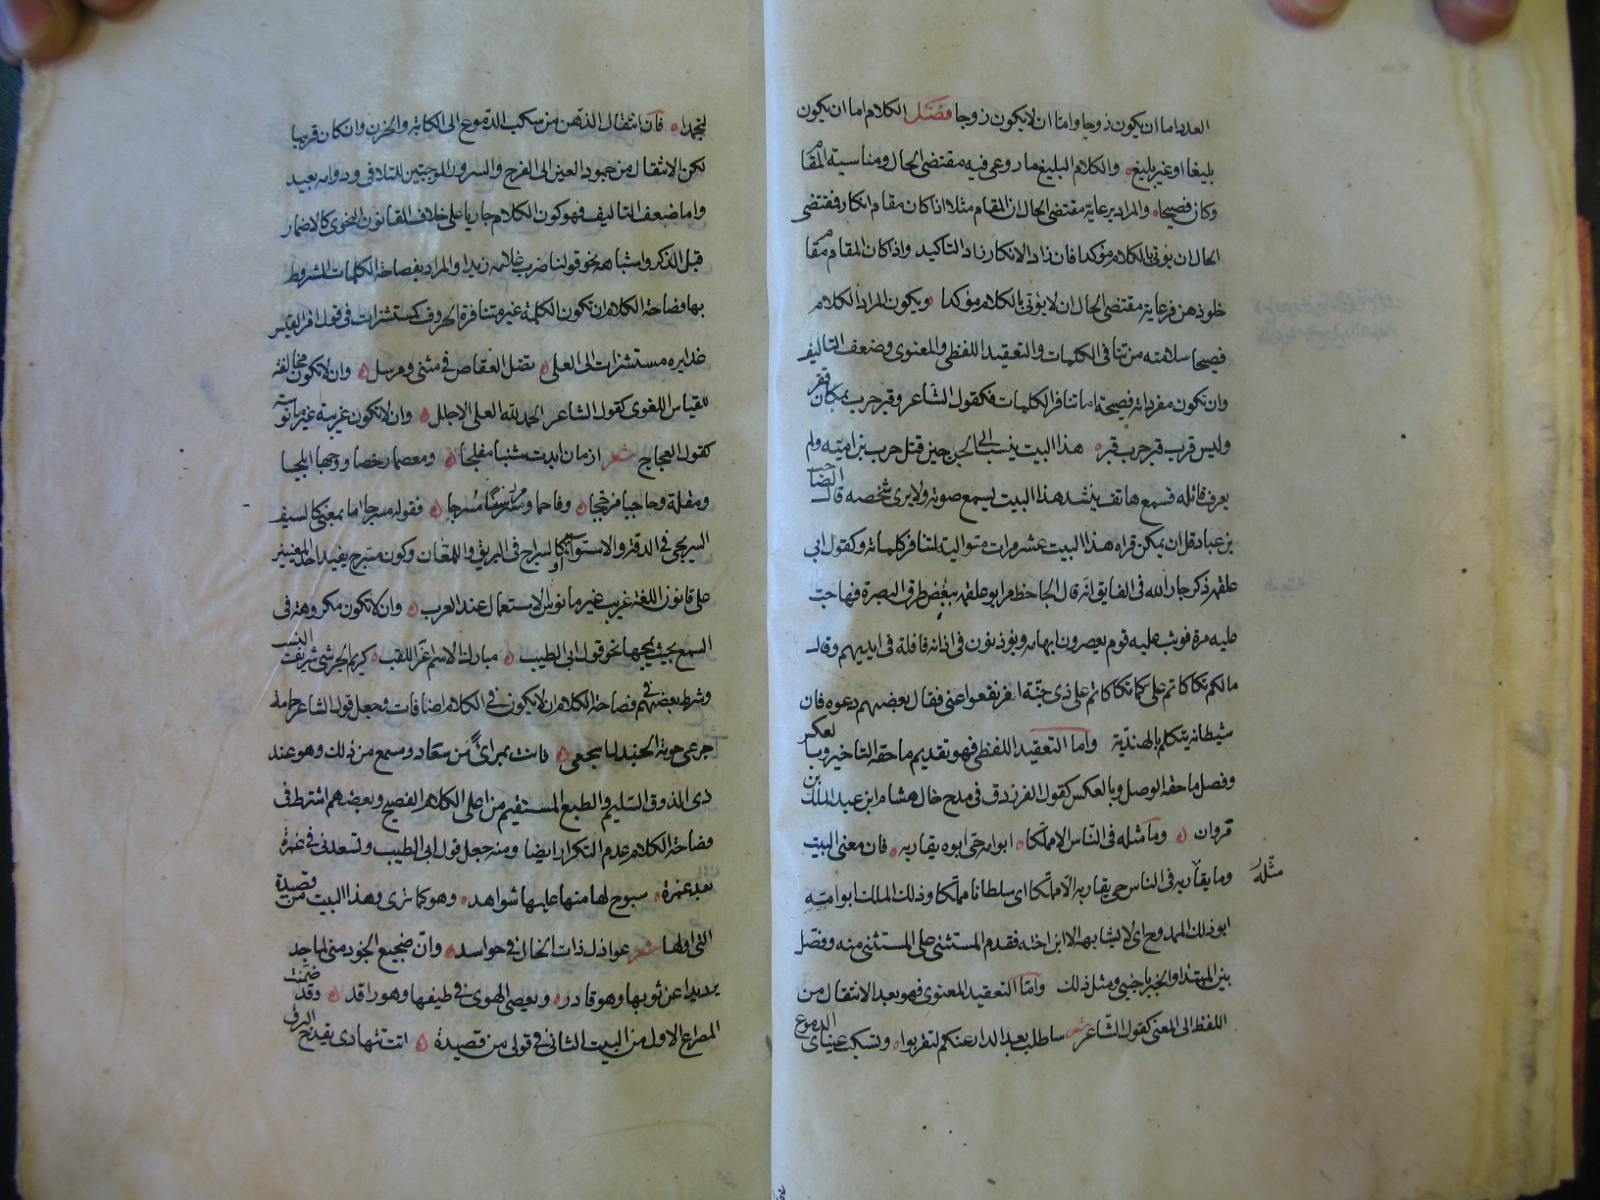 العدد اما ان يكون زوجا واما ان لا يكون زوجا فصل الكلام اما ان يكون
بليغا او غير بليغ والكلام البليغ ما روعى فيه مقتضى الحال ومناسبة المقام
وكان فصيحا والمراد برعاية مقتضى الحال ان المقام مثلا اذا كان مقام انكار فمقتضى
الحال ان يؤتى بالكلام مؤكدا فان زاد الانكار زاد التاكيد واذا كان المقام مقام
خلو ذهن فرعاية مقتضى الحال ان لا يؤتى بالكلام مؤكدا ويكون المراد الكلام
فصيحا سلامته من تنافى الكلمات والتعقيد اللفظى والمعنوى وضعف التاليف
وان تكون مفرداته فصيحة اما تنافر الكلمات فكقول الشاعر وقبر حرب بمكان قفر
وليس قرب قبر حرب قبر هذا البيت ينسب الى الجن حين قتل حرب بن امية ولم
يعرف قاتله فسمع هاتف ينشد هذا البيت يسمع صوته ولا يرى شخصه قال الصاحب
بن عباد قل ان يمكن قراه هذا البيت عشر مرات متوالية لتنافر كلماته وكقول ابى
علقمه ذكر جار الله فى الفايق انه قال الجاحظ مر ابو علقمه ببعض طرق البصرة فهاجت
عليه مرة فوثب عليه قوم يعصرون ابهامه ويؤذنون فى اذانه فافلت فى ايديهم وقال
مالكم تكاكاتم على كما تكاكاتم على ذى جنة افرنقعوا عنى فقال بعضهم دعوه فان
شيطانه يتكلم بالهندية واما التعقيد اللفظى فهو تقديم ما حقه التاخير وبالعكس
وفصل ما حقه الوصل وبالعكس كقول الفرزدق فى مدح خال هشام ابن عبد الملك بن
مروان وما مثله فى الناس الا مملكا ابو امه حى ابوه يقاربه فان معنى البيت
وما يقاربه فى الناس حى يقاربه الا مملكا اى سلطانا مملكا وذلك الملك ابو امه
مثله
ابو ذلك الممدوح اى لا يشابهه الا ابن اخته فقدم المستثنى على المستثنى منه وفصل
بين المبتدا والخبر باجنبى ومثل ذلك واما التعقيد المعنوى فهو بعد الانتقال من
اللفظ الى المعنى كقول الشاعر شعر ساطلب بعد الدار عنكم لتقربوا وتسكب عيناى الدموع
لتجمدا فان انتقال الذهن من سكب الدموع الى الكابة والحزن وان كان قريبا
لكن الانتقال من جمود العين الى الفرح والسرور الموجبتين للتلاقى ودوامه بعيد
واما ضعف التاليف فهو كون الكلام جاريا على خلاف القانون النحوى كالاضمار
قبل الذكر واشباهه نحو قولنا ضرب غلامه زيدا والمراد بفصاحة الكلمات المشروط
بها فصاحة الكلام ان تكون الكلمة غير متنافرة الحروف كمستشزرات فى قول امرالقيس
غدايره مستشزرات الى العلى تضل العقاص فى مثنى ومرسل وان لا تكون مخالفة
للقياس اللغوى كقول الشاعر الحمد لله العلى الاجلل وان لا تكون غريبة غير مانوسة
كقول العجاج شعر ازمان ابدت شنبا مفلجا ومعصما رخصا ووجها ابلجا
ومقلة وحاجبا مزججا وفاحما ومرسنا مسرجا فقوله مسرجا اما بمعنى كالسيف
السريجى فى الدقة والاستواء او كالسراج فى البريق واللمعان وكون مسرج يفيد احد المعنيين
على قانون اللغة غريب غير مانوس الاستعمال عند العرب وان لا تكون مكروهة فى
السمع بحيث يمجها نحو قول ابى الطيب مبارك الاسم اغر اللقب كريم الجرشى شريف النسب
وشرط بعضهم فى فصاحة الكلام ان لا يكون فى الكلام اضافات وجعل قول الشاعر حمامة
جرعى حومة الجندل اسجعى فانت بمراى من سعاد ومسمع من ذلك وهو عند
ذى الذوق السليم والطبع المستقيم من اعلى الكلام الفصيح وبعضهم اشترط فى
فصاحة الكلام عدم التكرار ايضا ومنه جعل قول ابى الطيب وتسعدنى فى غمرة
بعد غمرة سبوح لها منها عليها شواهد وهو كما ترى وهذا البيت من قصيدة
التى اولها شعر عواذل ذات الخال فى حواسد وان ضجيع الخود منى لماجد
يرد يدا عن ثوبها وهو قادر ويعصى الهوى فى طيفها وهو راقد وقد ضمنت
المصراع الاول من البيت الثانى فى قولى من قصيدة اتت تتهادى يقدح البرق